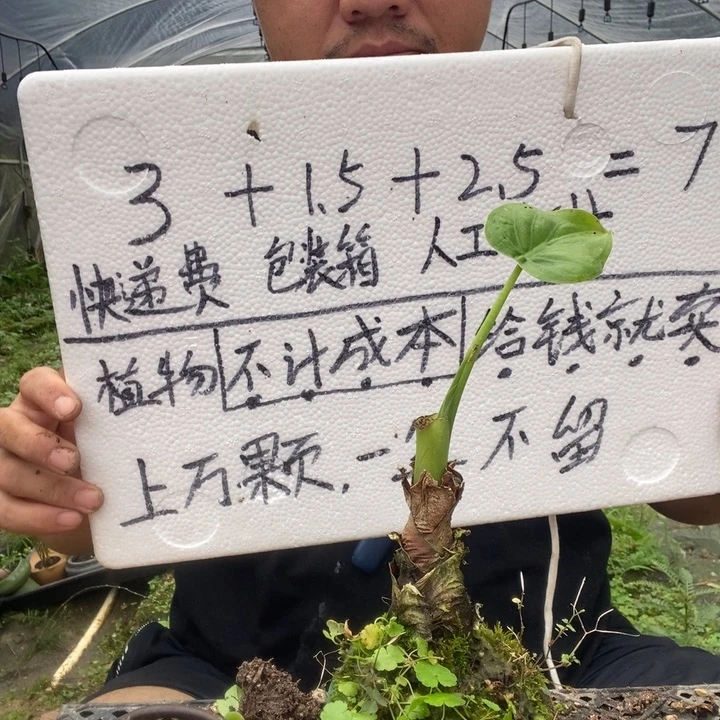 3 + 1.5 + 2.5 = 7
快递费 包装箱 人工
植物不计成本给钱就卖
上万颗,一 不留